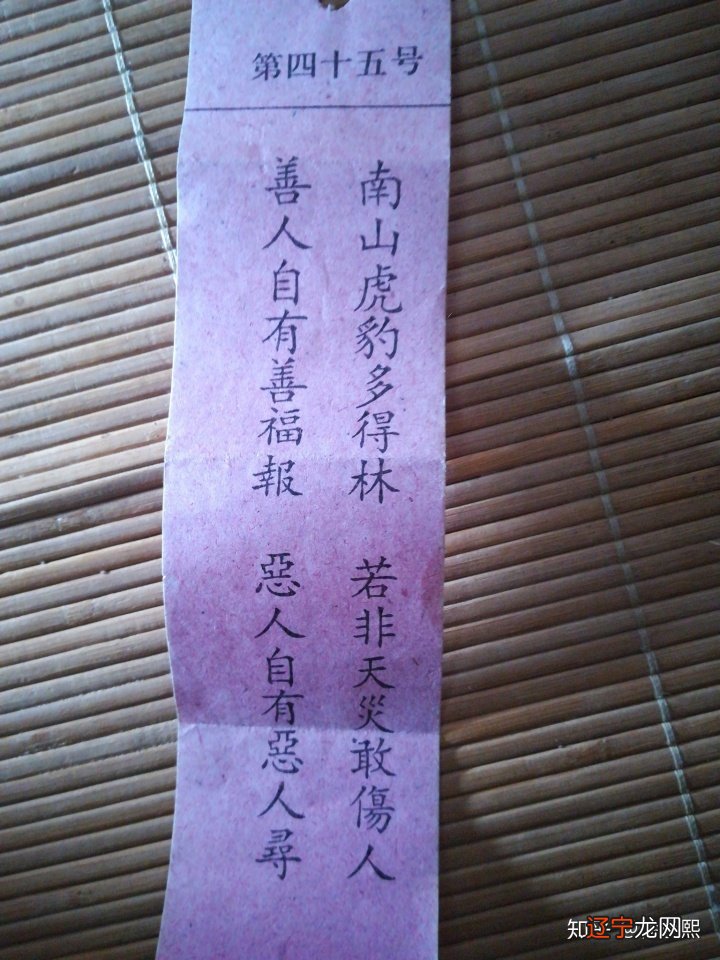 第四十五号
南山虎豹多得林　若非天災敢傷人
善人自有善福報　惡人自有惡人尋
辽宁龙网熙